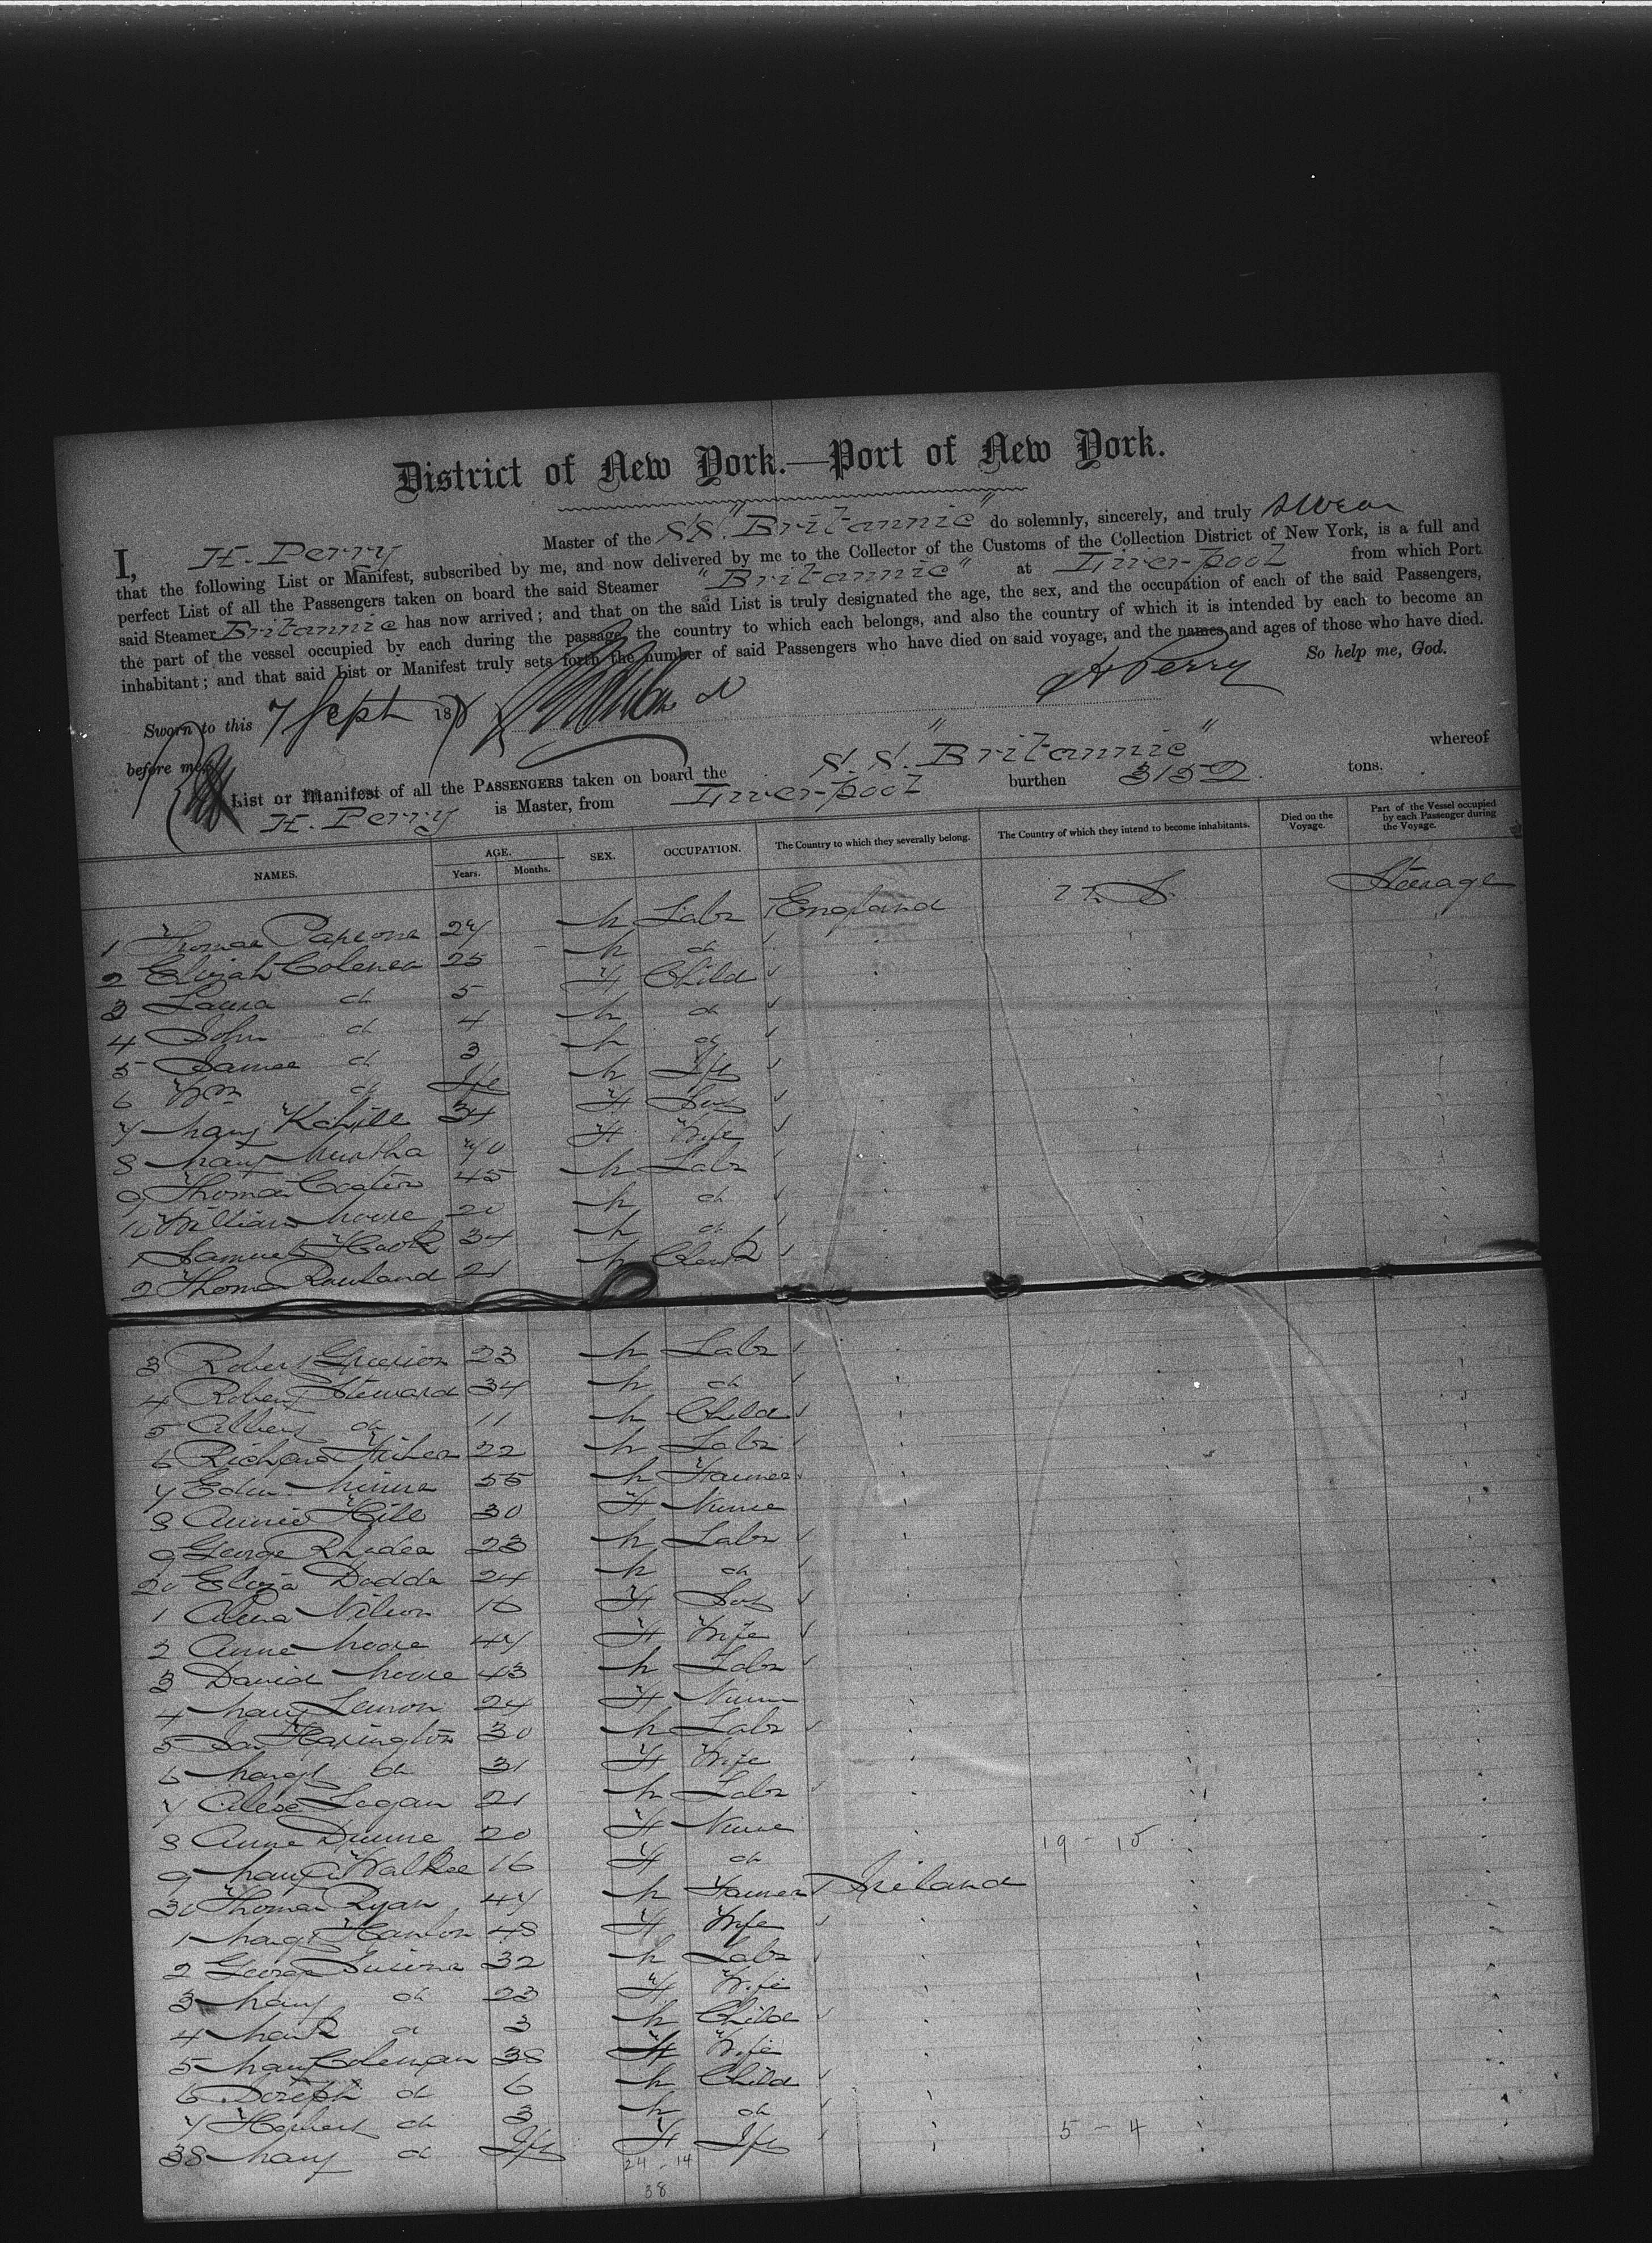 District of New York.—Port of New York.
I, H. Perry Master of the S.S. "Britannic" do solemnly, sincerely, and truly swear
that the following List or Manifest, subscribed by me, and now delivered by me to the Collector of the Customs of the Collection District of New York, is a full and
perfect List of all the Passengers taken on board the said Steamer "Britannic" at Liverpool from which Port
said Steamer Britannic has now arrived; and that on the said List is truly designated the age, the sex, and the occupation of each of the said Passengers,
the part of the vessel occupied by each during the passage, the country to which each belongs, and also the country of which it is intended by each to become an
inhabitant; and that said List or Manifest truly sets forth the number of said Passengers who have died on said voyage, and the names and ages of those who have died.
So help me, God.
Sworn to this 7 Sept 187 H Perry
before me
List or Manifest of all the PASSENGERS taken on board the S.S. "Britannic" whereof
H. Perry is Master, from Liverpool burthen 3152 tons.
NAMES. AGE. Years. Months. SEX. OCCUPATION. The Country to which they severally belong. The Country of which they intend to become inhabitants. Died on the Voyage. Part of the Vessel occupied by each Passenger during the Voyage.
1 Thomas Parsons 27 M Labr England U.S. Steerage
2 Elijah 25 M do
3 Laura do 5 F Child
4 John do 4 M do
5 James do 3 M do
6 Wm do Inf M Inf
7 Mary 34 F
8 Mary Murtha 40 F Wife
9 Thomas 45 M Labr
10 William Moore 20 M do
1 Samuel Hook 34 M do
2 Thomas Rowland 21 M Clerk
3 Robert 23 M Labr
4 Robert Steward 34 M do
5 Albert do 11 M Child
6 Richard Fisher 22 M Labr
7 Edw. 55 M Farmer
8 Annie Hill 30 F Nurse
9 George Rhodes 23 M Labr
20 Eliza Dodds 24 M do
1 Nelson 16 F
2 Anne Moore 47 F Wife
3 David Moore 43 M Labr
4 Mary Lennon 24 F Nurse
5 Dan Harington 30 M Labr
6 Margt do 31 F Wife
7 Alexr Logan 21 M Labr
8 Anne Dunne 20 F Nurse
9 Mary A Walker 16 F do 19 - 10
30 Thomas Ryan 47 M Farmer Ireland
1 Margt Hanlon 48 F Wife
2 George 32 M Labr
3 Mary do 23 F Wife
4 Mark do 3 M Child
5 Mary Coleman 38 F Wife
6 Joseph do 6 M Child
7 Herbert do 3 M do
38 Mary do Inf F Inf 5 - 4
24 - 14
38